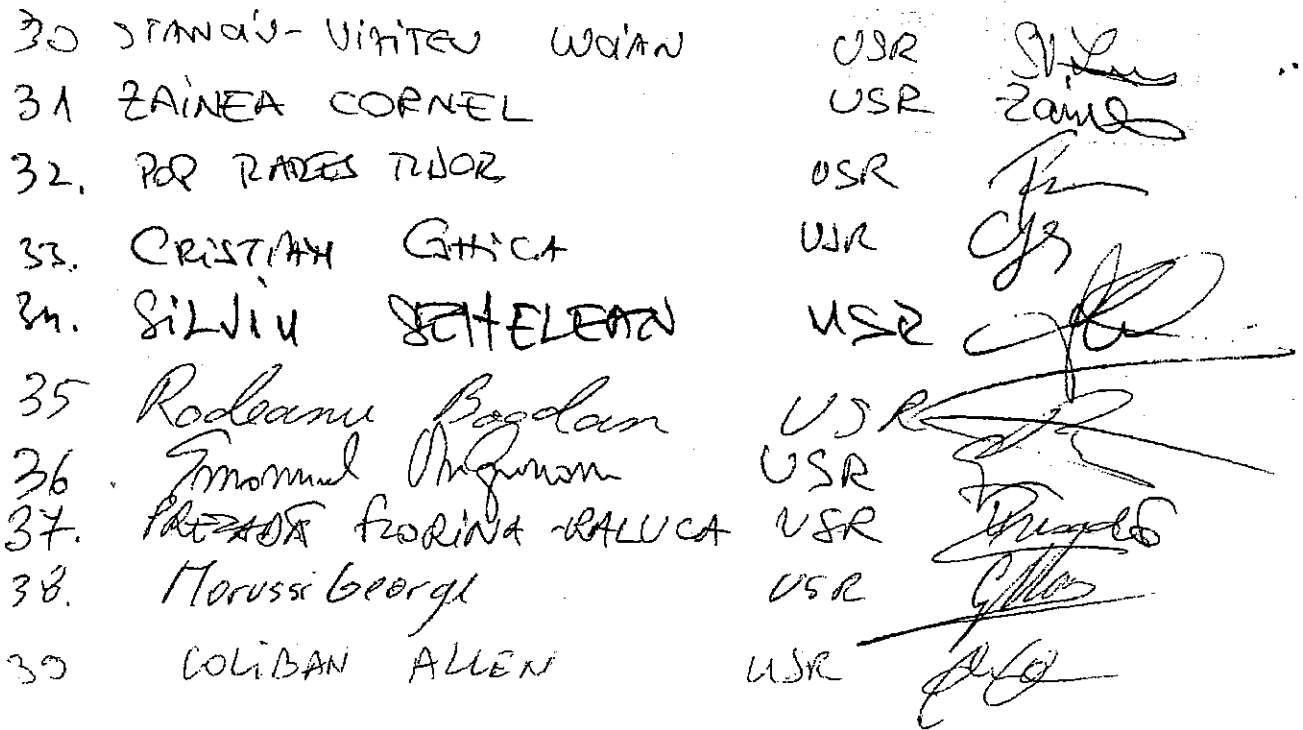 30 STANCIU-VIZITEU LUCIAN USR
31 ZAINEA CORNEL USR Zainea
32. POP RARES TUDOR USR
33. CRISTIAN GHICA USR
34. SILVIU DEHELEAN USR
35 Rodeanu Bogdan USR
36 Emanuel Ungureanu USR
37. PREZADĂ FLORINA-RALUCA USR
38. Marussi George USR
39 COLIBAN ALLEN USR